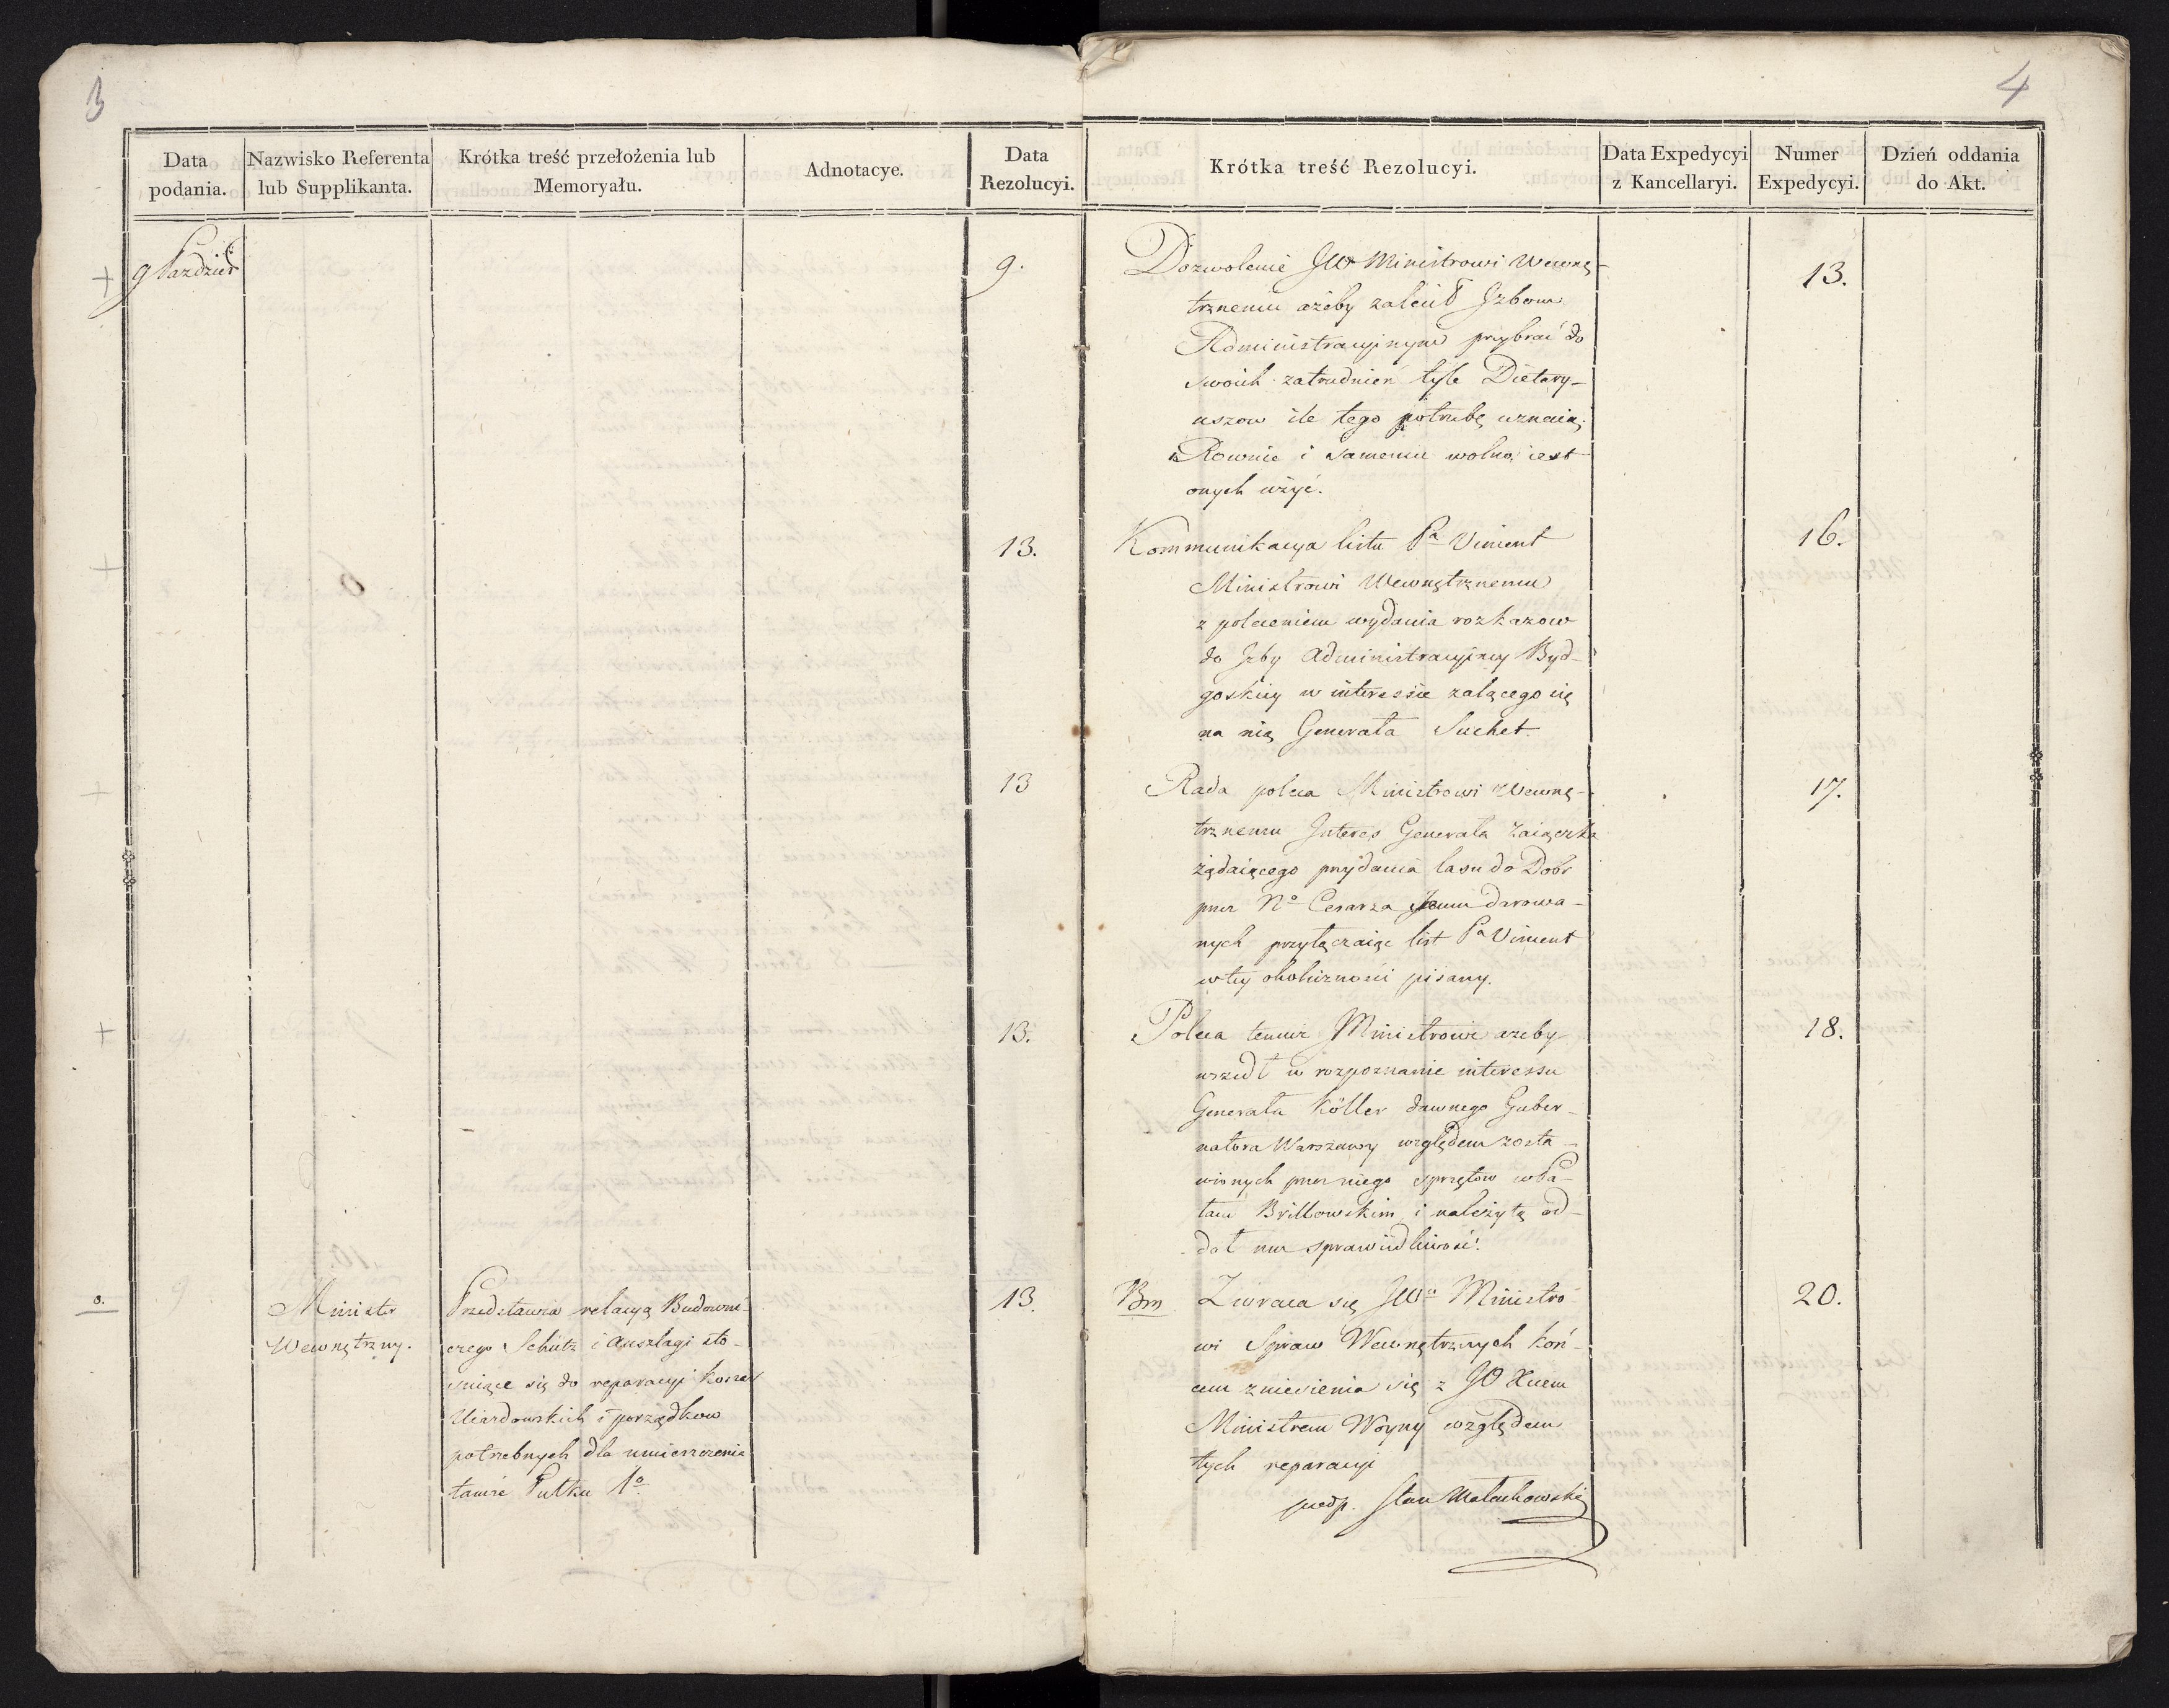 3
4
Data podania.
Nazwisko Referenta lub Supplikanta.
Krótka treść przełożenia lub Memoryału.
Adnotacye.
Data Rezolucyi.
Krótka treść Rezolucyi.
Data Expedycyi z Kancellaryi.
Numer Expedycyi.
Dzień oddania do Akt.
+ 9 Paździer
9.
Dozwolenie JW Ministrowi Wewnę-
trznemu ażeby zalecił Jzbom
Administracyjnym przybrać do
swoich zatrudnień tyle Dietary-
uszow ile tego potrzebę uznaią;
Rownie i samemu wolno iest
onych użyć.
13.
+
13.
Kommunikacya listu Pa Vincent
Ministrowi Wewnętrznemu
z poleceniem wydania rozkazow
do Jzby Administracyiney Byd-
goskiey w interessie żalącego się
na nią Generała Suchet.
16.
+
13
Rada poleca Ministrowi Wewnę-
trznemu Jnteres Generała Zaiączka
żądaiącego przydania lasu do Dobr
przez No Cesarza Jemu darowa-
nych przyłączaiąc list Pa Vincent
w tey okoliczności pisany.
17.
+
13.
Poleca temuż Ministrowi ażeby
wszedł w rozpoznanie interessu
Generała Köller dawnego Guber-
natora Warszawy względem zosta-
wionych przez niego sprzętow w Pa-
łacu Brillowskim i należytą od-
dał mu sprawiedliwość.
18.
8.
9
Minister
Wewnętrzny.
Przedstawia relacyą Budowni-
czego Schütz i Anszlagi sto-
suiące się do reparacyi Koszar
Uiazdowskich i porządkow
potrzebnych dla umieszczenia
tamże Pułku 1o
13.
Bm Zwraca się JWu Ministro-
wi Spraw Wewnętrznych koń-
cem zniesienia się z JO Xciem
Ministrem Woyny względem
tych reparacyi
podp. Stan Małachowski
20.